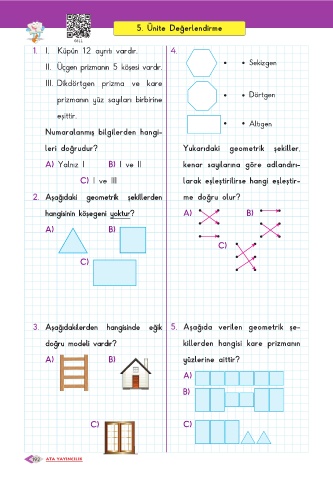 5. Ünite Değerlendirme
1. I. Küpün 12 ayrıtı vardır.
II. Üçgen prizmanın 5 köşesi vardır.
III. Dikdörtgen prizma ve kare
prizmanın yüz sayıları birbirine
eşittir.
Numaralanmış bilgilerden hangi-
leri doğrudur?
A) Yalnız I B) I ve II
C) I ve III
2. Aşağıdaki geometrik şekillerden
hangisinin köşegeni yoktur?
A) B)
C)
3. Aşağıdakilerden hangisinde eğik
doğru modeli vardır?
A) B)
C)
4.
• • Sekizgen
• • Dörtgen
• • Altıgen
Yukarıdaki geometrik şekiller,
kenar sayılarına göre adlandırı-
larak eşleştirilirse hangi eşleştir-
me doğru olur?
A) B)
C)
5. Aşağıda verilen geometrik şe-
killerden hangisi kare prizmanın
yüzlerine aittir?
A)
B)
C)
192 ATA YAYINCILIK